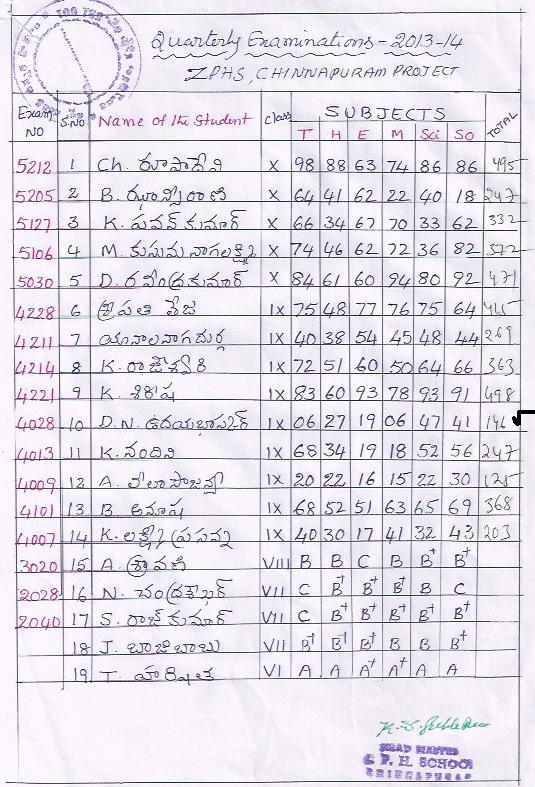 Quarterly Examinations - 2013-14
ZPHS, CHINNAPURAM PROJECT
Exam NO S.NO Name of the Student Class SUBJECTS TOTAL
T H E M Sci So
5212 1 Ch. రూపాదేవి X 98 88 63 74 86 86 495
5205 2 B. ఝాన్సీరాణి X 64 41 62 22 40 18 247
5127 3 K. పవన్ కుమార్ X 66 34 67 70 33 62 332
5106 4 M. కుసుమ నాగలక్ష్మి X 74 46 62 72 36 82 372
5030 5 D. రవీంద్రకుమార్ X 84 61 60 94 80 92 471
4228 6 శ్రీపతి తేజ IX 75 48 77 76 75 64 415
4211 7 యానాలనాగదుర్గ IX 40 38 54 45 48 44 269
4214 8 K. రాజేశ్వరి IX 72 51 60 50 64 66 363
4221 9 K. శిరీష IX 83 60 93 78 93 91 498
4028 10 D.N. ఉదయభాస్కర్ IX 06 27 19 06 47 41 146
4013 11 K. నందిని IX 68 34 19 18 52 56 247
4009 12 A. లీలాసౌజన్య IX 20 22 16 15 22 30 125
4101 13 B. అనూష IX 68 52 51 63 65 69 368
4007 14 K. లక్ష్మీ ప్రసన్న IX 40 30 17 41 32 43 203
3020 15 A. శ్రావణి VIII B B C B B+ B+
2028 16 N. చంద్రశేఖర్ VII C B+ B+ B+ B C
2040 17 S. రాజ్ కుమార్ VII C B+ B+ B+ B+ B+
18 J. బాజిబాబు VII B+ B+ B+ B B B+
19 T. హర్షిత VI A A A+ A+ A A
HEAD MASTER
Z. P. H. SCHOOL
CHINNAPURAM